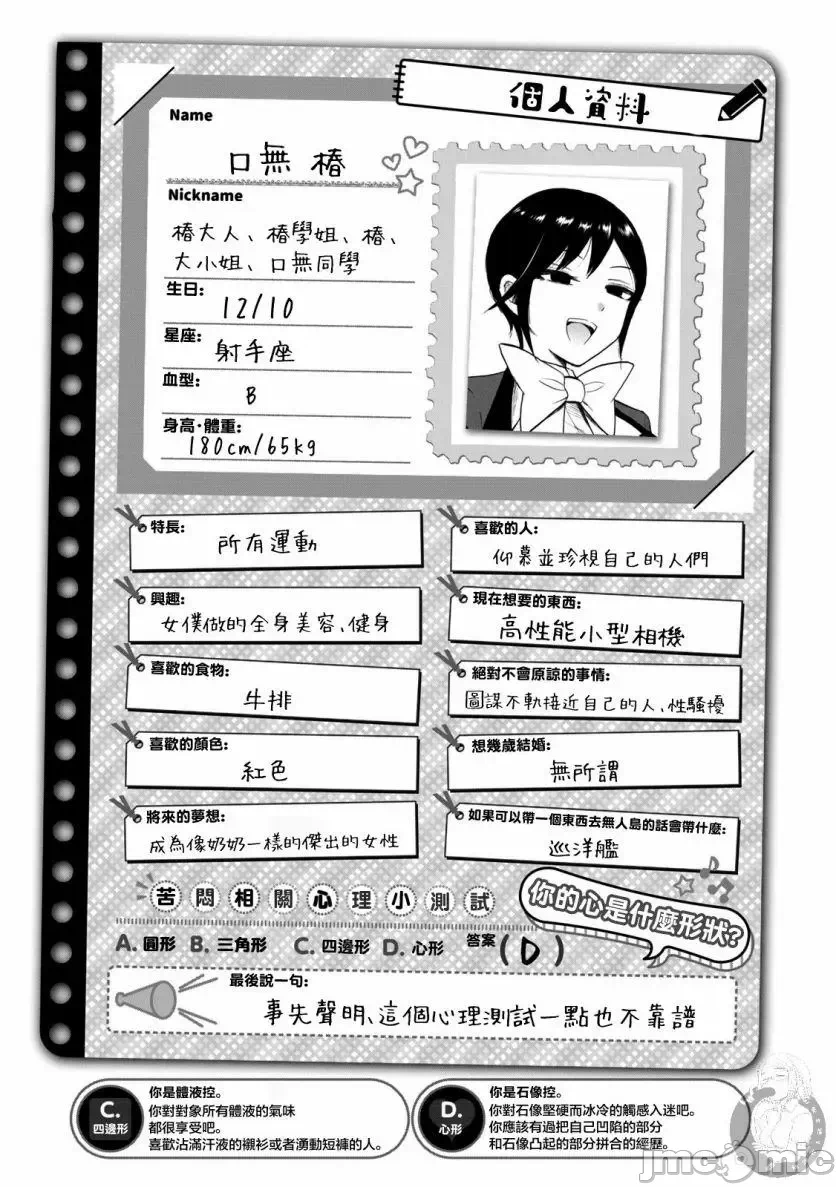 個人資料
Name
口無 椿
Nickname
椿大人、椿學姐、椿、
大小姐、口無同學
生日:
12/10
星座:
射手座
血型:
B
身高·體重:
180cm/65kg
特長:
所有運動
喜歡的人:
仰慕並珍視自己的人們
興趣:
女僕做的全身美容、健身
現在想要的東西:
高性能小型相機
喜歡的食物:
牛排
絕對不會原諒的事情:
圖謀不軌接近自己的人、性騷擾
喜歡的顏色:
紅色
想幾歲結婚:
無所謂
將來的夢想:
成為像奶奶一樣的傑出的女性
如果可以帶一個東西去無人島的話會帶什麼:
巡洋艦
苦悶相關心理小測試
你的心是什麼形狀?
A. 圓形 B. 三角形 C. 四邊形 D. 心形 答案(D)
最後說一句:
事先聲明、這個心理測試一點也不靠譜
C.
四邊形
你是體液控。
你對對象所有體液的氣味
都很享受吧。
喜歡沾滿汗液的襯衫或者湧動短褲的人。
D.
心形
你是石像控。
你對石像堅硬而冰冷的觸感入迷吧。
你應該有過把自己凹陷的部分
和石像凸起的部分拼合的經歷。
jmcomic